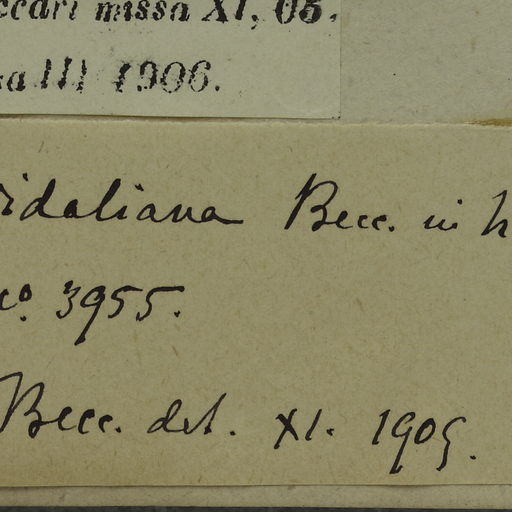 ccari missa XI, 05.
a III 1906.
idaliana Becc. in h
co. 3955.
Becc. det. XI. 1905.